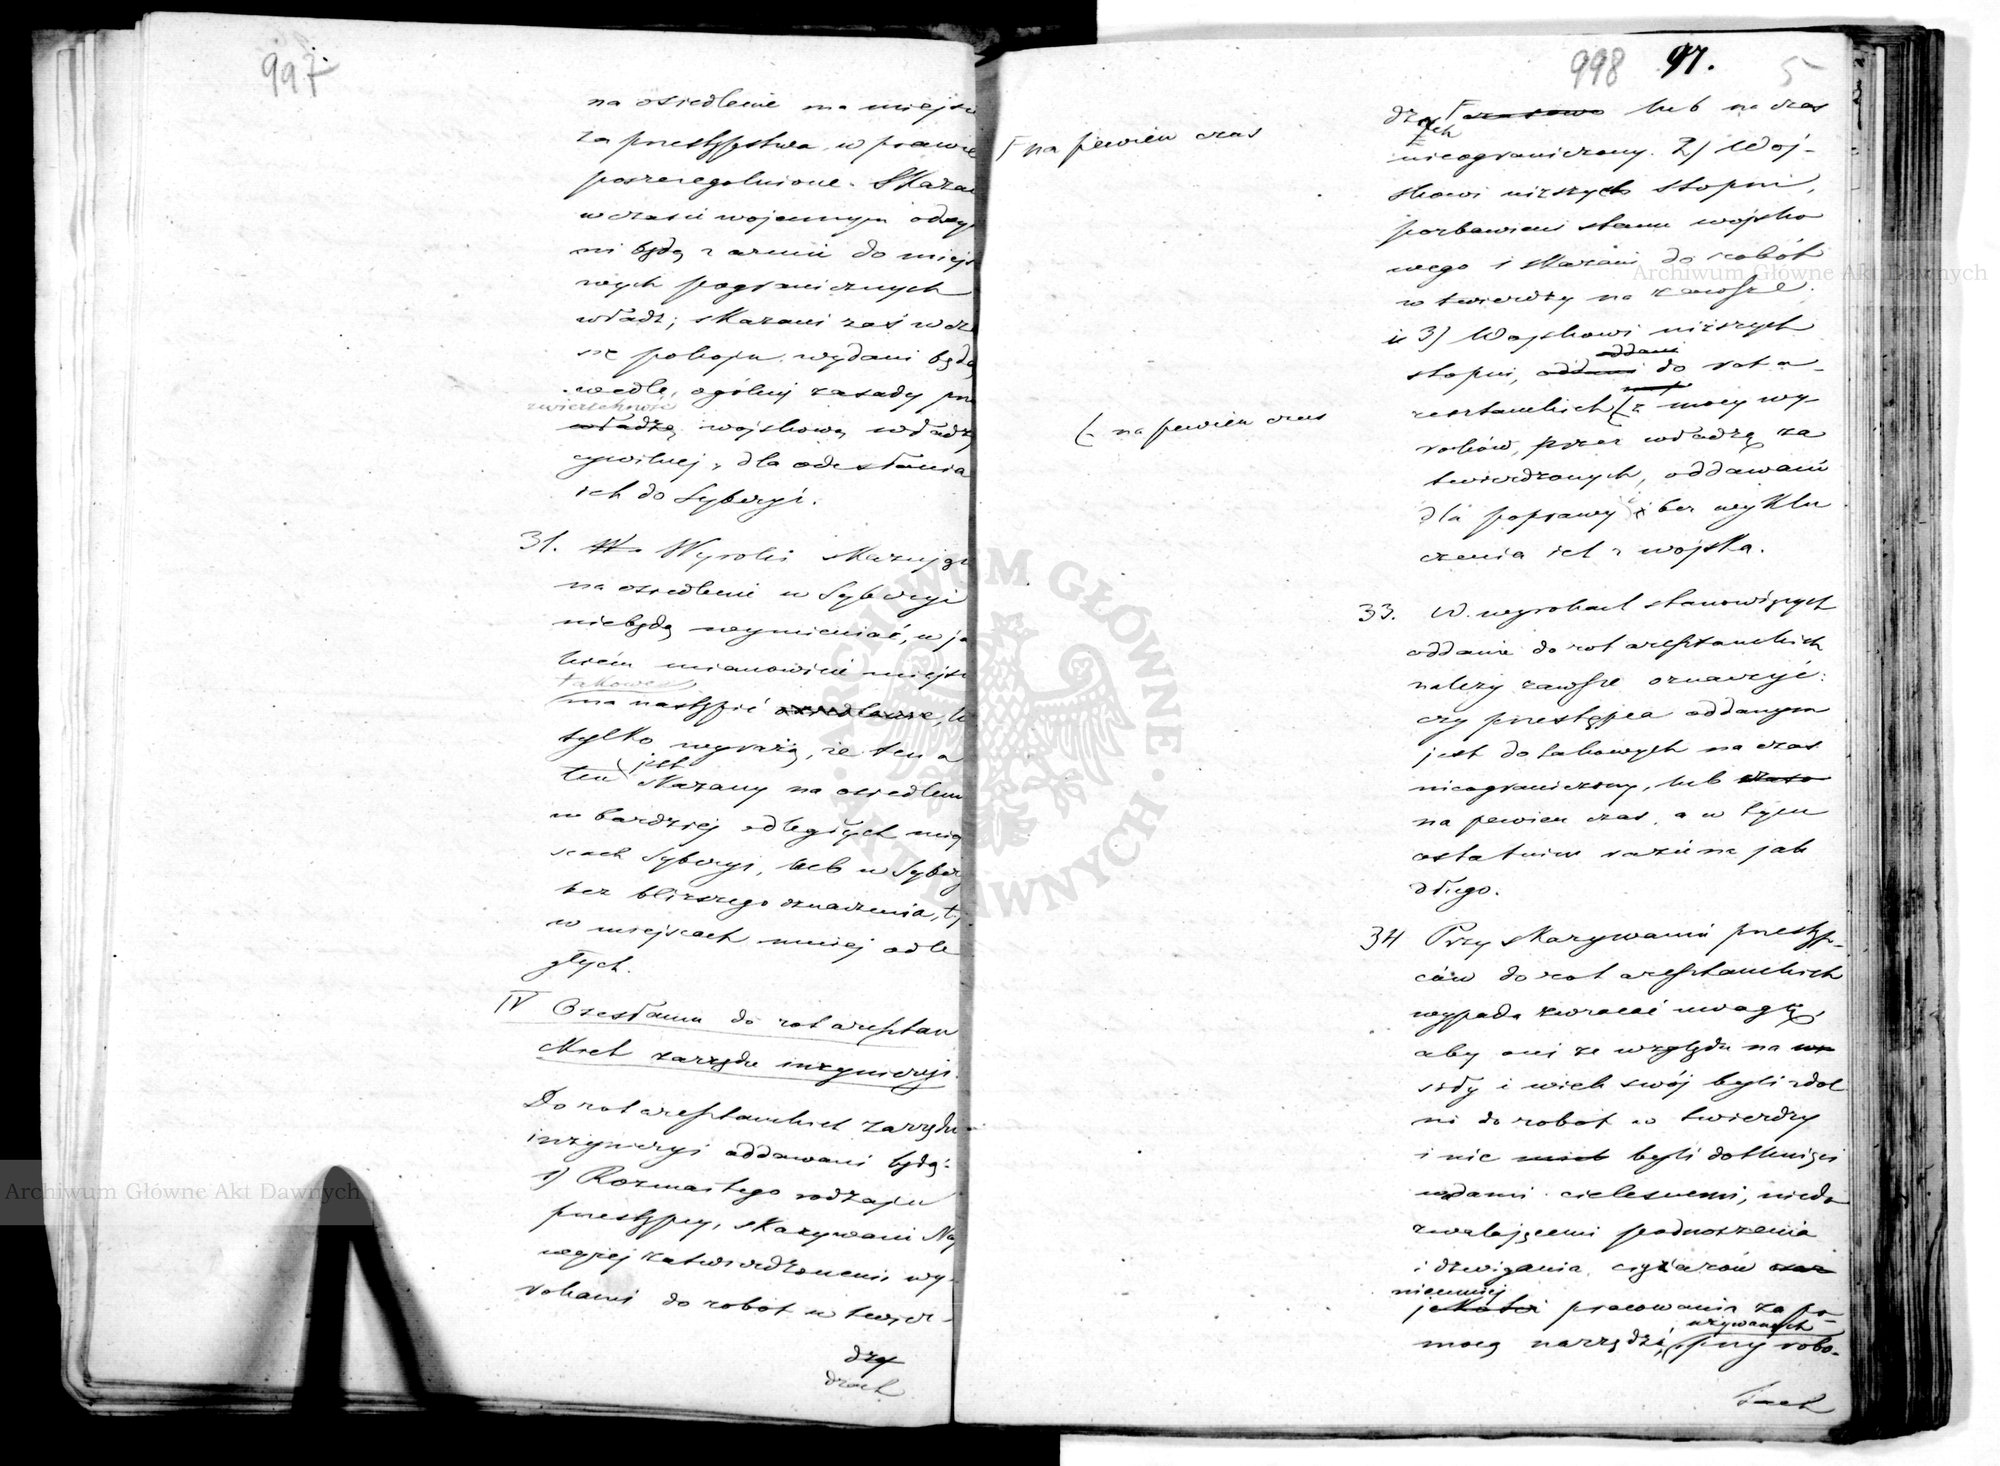 997.
na osiedlenie na miejsc
za przestępstwa, w prawie
poszczególnione. Skazan
w czasie wojennym odsy
ni będą z armii do miejs
wych pogranicznych
władz; skazani zaś w cza
się pokoju, wydani będą
wedle, ogólnej zasady prze
zwierzchność
władzę wojskową władzy
cywilnej, dla odesłania
ich do Syberyi.
31. Wyroki skazujące
na osiedlenie w Syberyi
niebędą wymieniać, w ja
kiém mianowicie miejscu
takowe
ma nastąpić osiedlenie, le
tylko wyrażą, że ten a
ten jest skazany na osiedlen
w bardziej odległych miej
scach Syberyi, lub w Sybery
bez bliższego oznaczenia, t.j.
w miejscach mniej odle
głych.
IV Odesłanie do rot aresztan
ckich zarządu inżynieryi.
Do rot aresztanckich zarządu
inżynieryi oddawani będą:
1) Rozmaitego rodzaju
przestępcy, skazywani Naj
wyżej zatwierdzonemi wy-
rokami do robot w twier-
dzy
dzach
998 97. 5
Γ na pewien czas
dzach Γ czasowo lub na czas
nieograniczony. 2) Woj-
skowi niższych stopni,
pozbawieni stanu wojsko
wego i skazani do robót
w twierdzy na zawsze.
i 3) Wojskowi niższych
oddani
stopni, oddani do rot a-
resztanckich ( z mocy wy-
( na pewien czas
roków, przez władzę za
twierdzonych, oddawani
dla poprawy i bez wyklu
czenia ich z wojska.
33. W wyrokach stanowiących
oddanie do rot aresztanckich
należy zawsze oznaczyć:
czy przestępca oddanym
jest do takowych na czas
nieograniczony, lub czaso
na pewien czas, a w tym
ostatnim razie na jak
długo.
34 Przy skazywaniu przestęp-
ców do rot aresztanckich
wypada zwracać uwagę,
aby oni ze względu na
siły i wiek swój byli zdol
ni do robot w twierdzy
i nie mieli byli dotknięci
wadami cielesnemi, niedo
zwalającemi podnoszenia
i dźwigania ciężarów oraz
niemniej
jakoteż pracowania za po-
używanych
mocą narzędzi, przy robo-
tach
Archiwum Główne Akt Dawnych
Archiwum Główne Akt Dawnych
ARCHIWUM GŁÓWNE AKT DAWNYCH